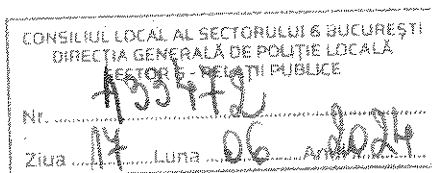 CONSILIUL LOCAL AL SECTORULUI 6 BUCUREȘTI
DIRECȚIA GENERALĂ DE POLIȚIE LOCALĂ
SECTOR 6 - RELAȚII PUBLICE
Nr. 133472
Ziua 17 Luna 06 Anul 2024